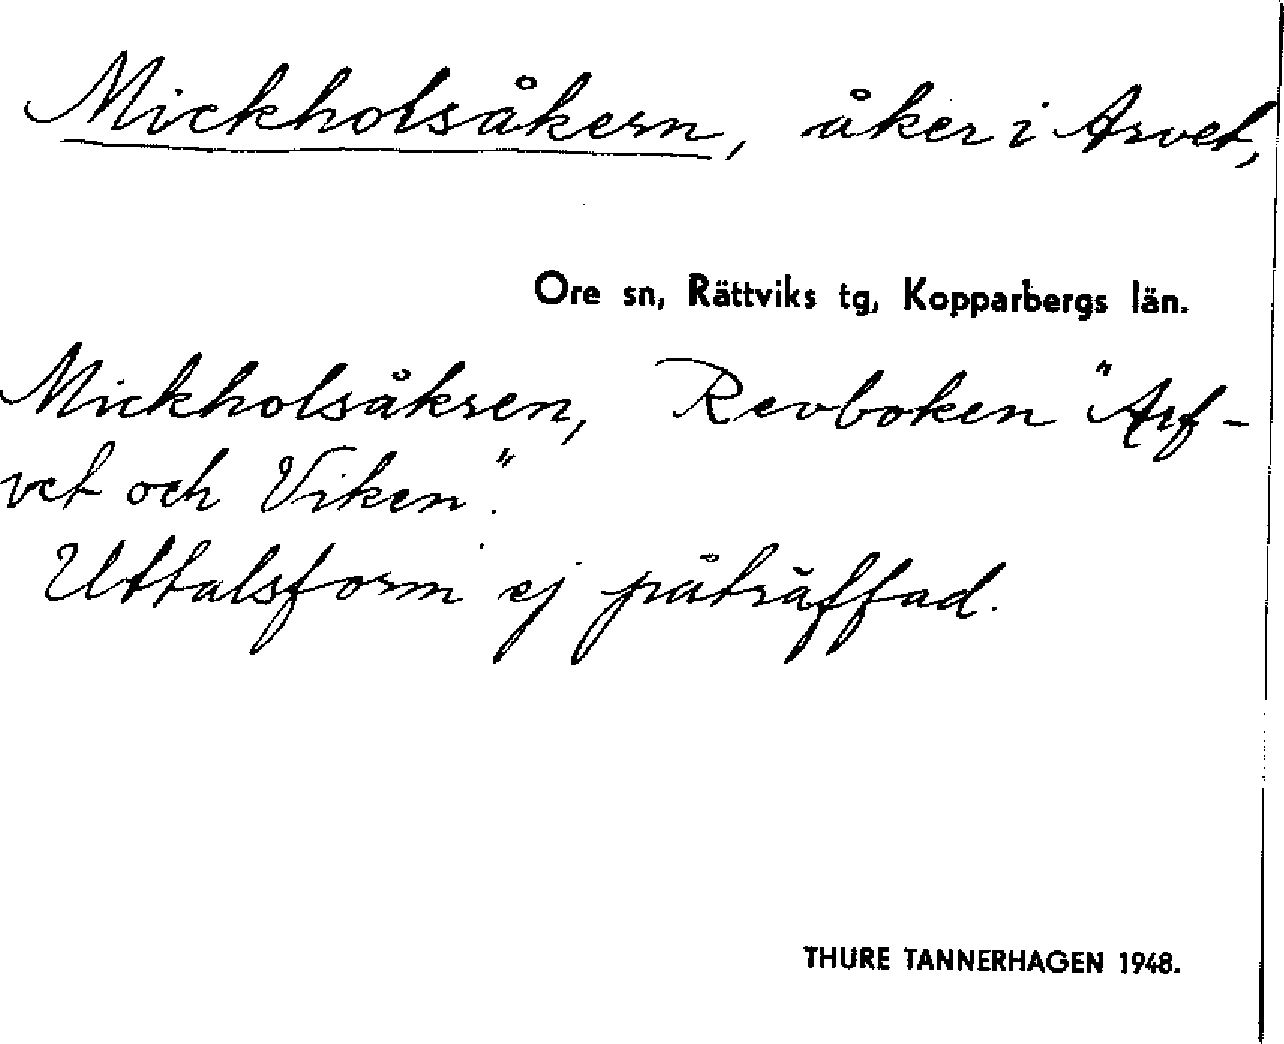 Mickholsåkern, åker i Arvet,
Ore sn, Rättviks tg, Kopparbergs län.
Mickholsåkren, Revboken "Arf-
vet och Viken".
Uttalsform ej påträffad.
THURE TANNERHAGEN 1948.